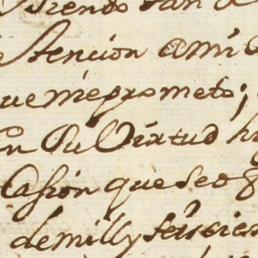 siendo tan
Atencion ami
que me prometo;
en su Virtud h
Casion que se o
de mill y